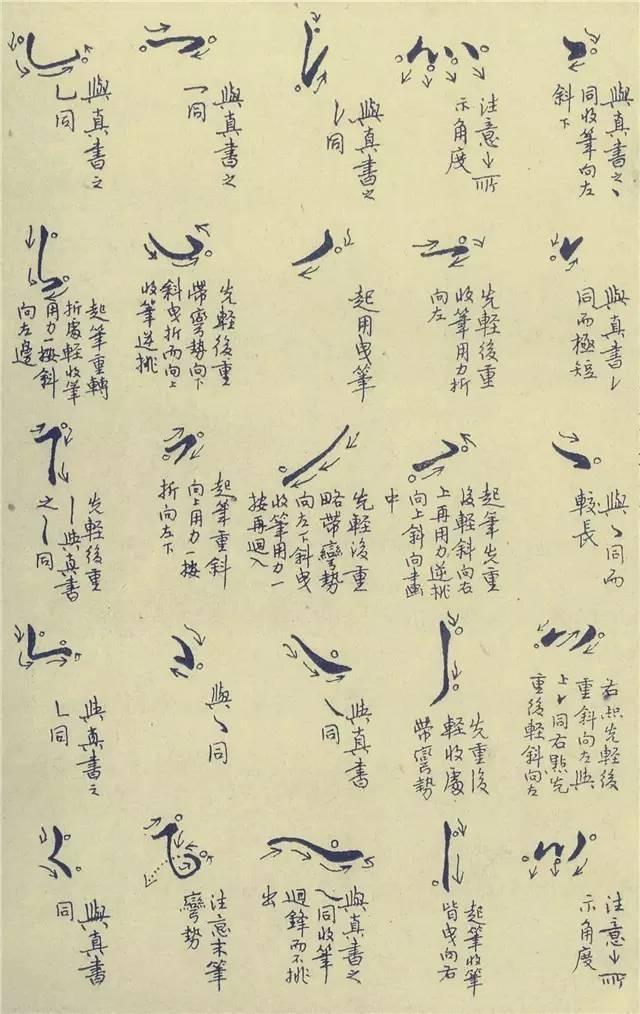 與真書之丶
同收筆向左
斜下
與真書㇀
同而極短
與丶同而
較長
右點先輕後
重斜向左與
上㇀同右點先
重後輕斜向左
注意↓所
示角度
注意↓所
示角度
先輕後重
收筆用力折
向左
起筆先重
後輕斜向右
上再用力逆挑
向上斜向畫
中
先重後
輕收處
帶彎勢
起筆收筆
皆曳向右
與真書之
㇀同
起用曳筆
先輕後重
略帶彎勢
向左下斜曳
收筆用力一
按再迴入
與真書
㇏同
與真書之
㇏同收筆
迴鋒而不挑
出
與真書之
一同
先輕後重
帶彎勢向下
斜曳折而向上
收筆逆挑
起筆重斜
向上用力一按
折向左下
與丶同
注意末筆
彎勢
與真書之
㇄同
起筆重轉
折處輕收筆
用力一按斜
向左邊
先輕後重
丨與真書
之丨同
與真書之
㇄同
與真書
同